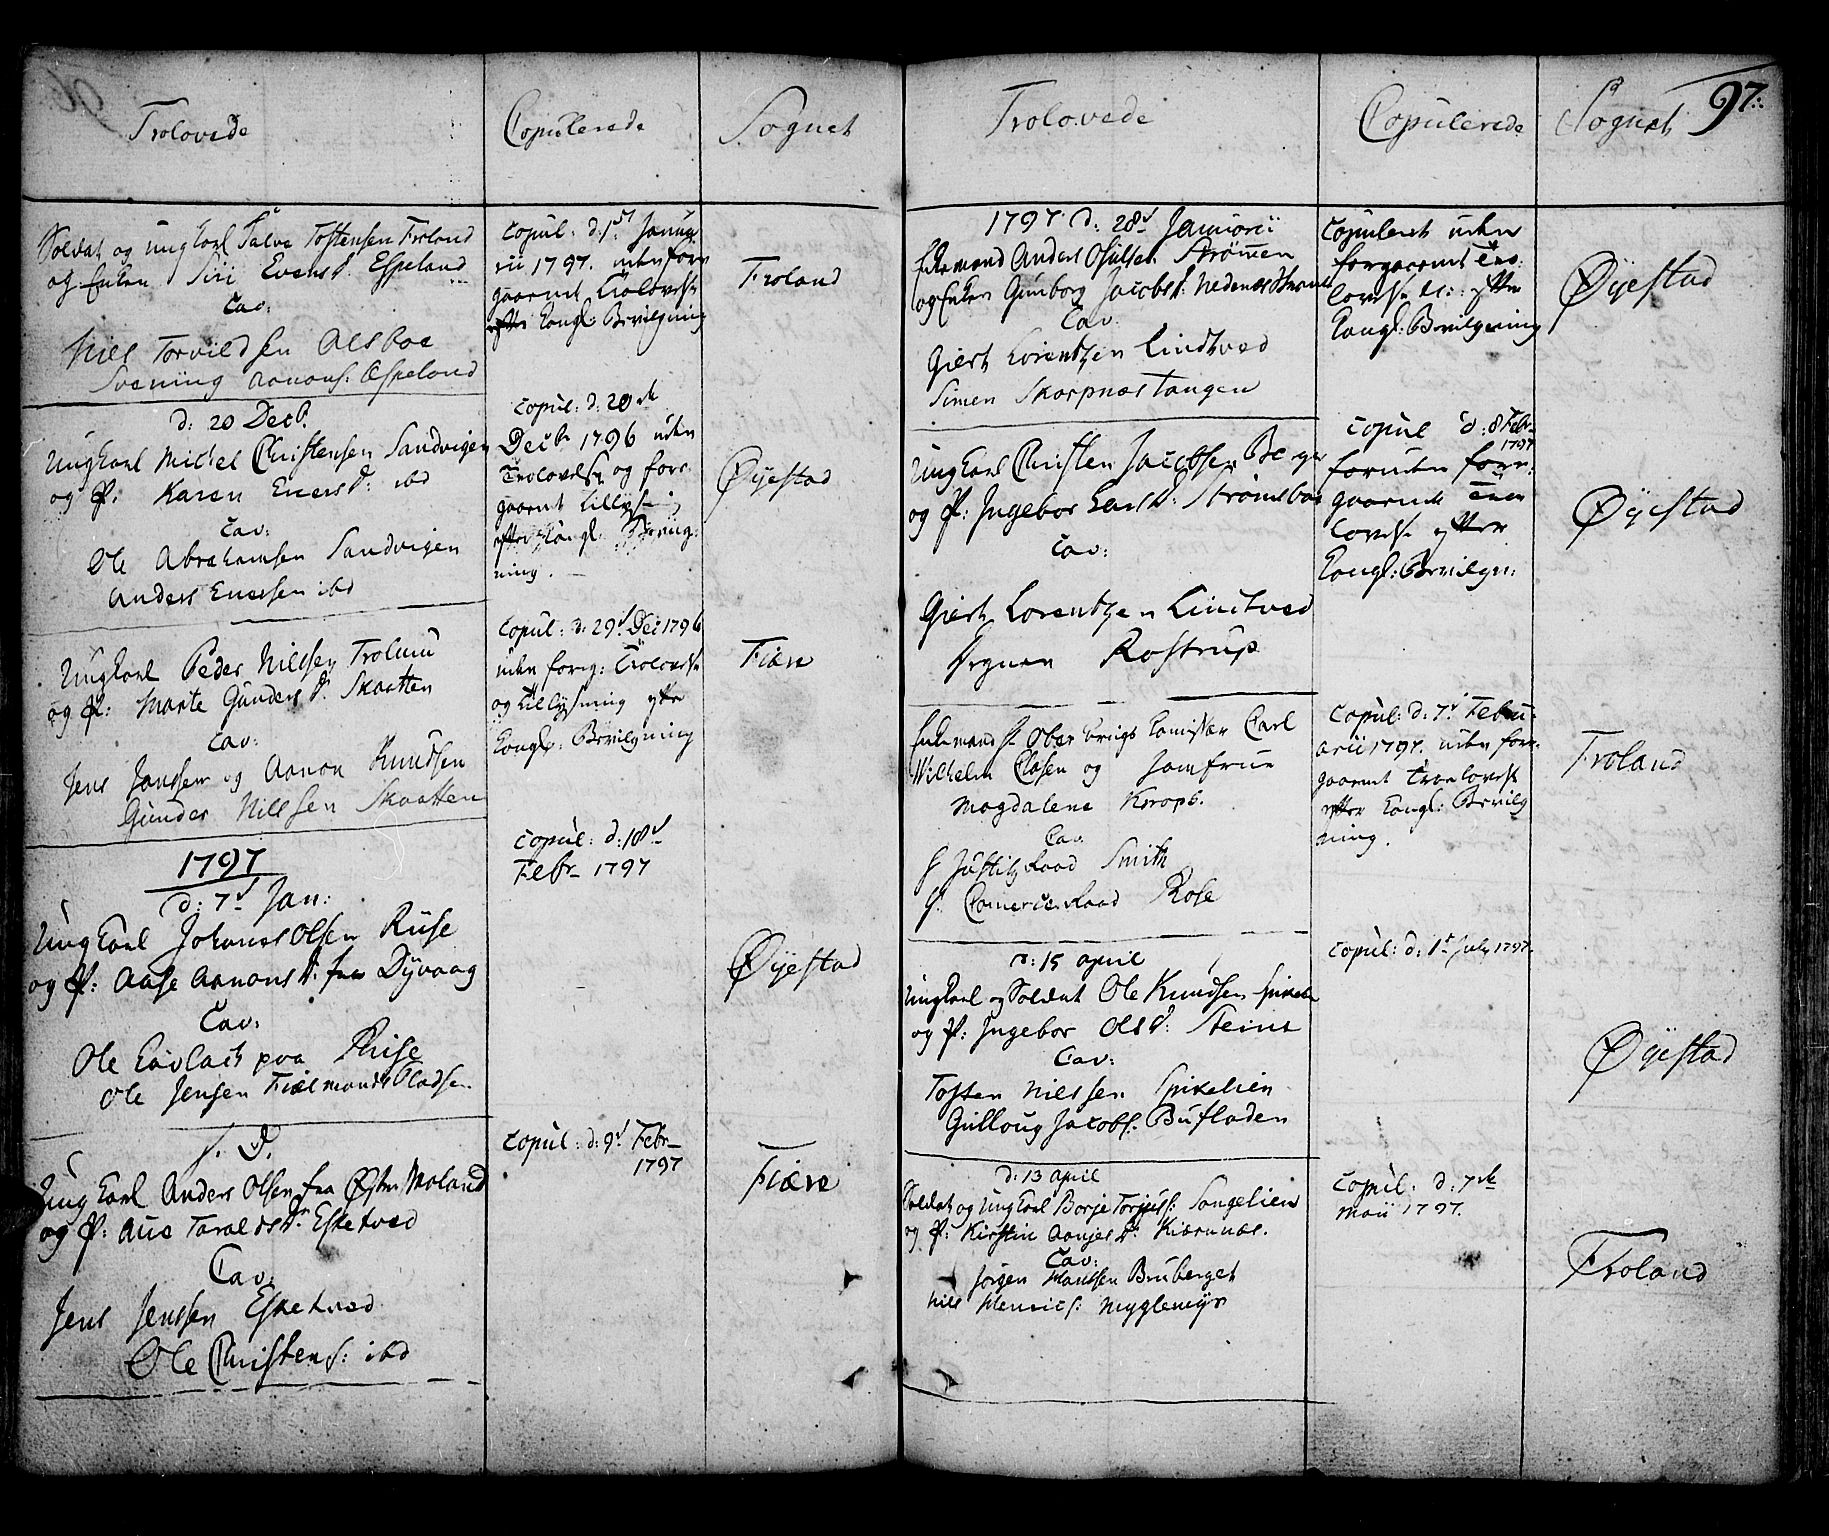 Trolovede
Copulerede
Sognet
Soldat og ungkarl Salve Tostensen Froland
og Enken Siri Evens D. Espeland
Cav:
Nils Torvildsen Alsboe
Svening Aanons: Espeland
Copul: d: 1st Janua
rii 1797. uden fore
gaaende Trolovelse
efter Kongl: Bevilgning
Froland
d: 20 Decb.
Ungkarl Mickel Christensen Sandvigen
og P: Karen Eners D: ibd
Cav:
Ole Abrahamsen Sandvigen
Anders Enersen ibd
Copul: d: 20de
Decbr 1796 uden
Trolovelse og fore
gaaende Tillysn:
efter Kongl: Bevilg:
ning.
Øyestad
Ungkarl Peder Nilsen Trolnæs
og P: Marte Gunders D: Skaatten
Cav:
Jens Jonssen og Aanon Knudsen
Gunder Nilssen Skaatten
Copul: d: 29d Dec 1796
uden foreg: Trolovelse
og Tillysning efter
Kongl: Bevilgning
Fiære
1797
d: 7d Jan:
Ungkarl Johannes Olsen Rise
og P: Aase Aanons D: fra Dyvaag
Cav:
Ole Gavlach paa Rise
Ole Jensen Fielmands Pladsen
Copul: d: 18d
Febr 1797
Øyestad
s. D.
Ungkarl Anders Olsen fra Øster Moland
og P: Ane Taralds D: Esketved
Cav:
Jens Jenssen Esketved
Ole Christens: ibd
Copul: d: 9d Febr
1797
Fiære
Trolovede
Copulerede
Sognet
97.
1797 d: 28d Januarii
Enkemand Anders Osulfsen Strømmen
og Enken Gunborg Jacobs D: Nedenes Strand
Cav:
Giert Lorentzen Lindtved
Simen Skarpnæs Tangen
Copuleret uden
foregaaende Tro:
lovelse &c: efter
Kongl: Bevilgning
Øyestad
Ungkarl Christen Jacobsen Berge
og P: Ingebor Lars D: Strømsboe
Cav:
Giert Lorentzen Lindtved
Rostrup
Copul d: 8 Febr
1797
foruden fore:
gaaende Troe
lovelse efter
Kongl: Bevilgn:
Øyestad
Enkemand Hr Ober Krigs Comissær Carl
Wilhelm Clasen og Jomfrue
Magdalene Kerops.
Cav.
Hr Justitz Raad Smith
Hr Comerce Raad Rose
Copul: d: 7d Febru:
arii 1797. uden fore:
gaaende Troelovelse
efter Kongl: Bevilg
ning.
Froland
d: 15 April
Ungkarl og Soldat Ole Knudsen Spikelie
og P: Ingebor Ols D: Steins
Cav:
Tosten Nilssen Spikelien
Gulloug Jacobs: Bufladen
Copul: d: 1st July 1797.
Øyestad
d: 13 April
Soldat og Ungkarl Borje Torjus: Songelien
og P: Kirstin Aanjes D: Kiærnæs.
Cav:
Jørgen Hanssen Bruberget
Nils Henrics: Myglemyr
Copul: d: 7de
Maii 1797.
Froland